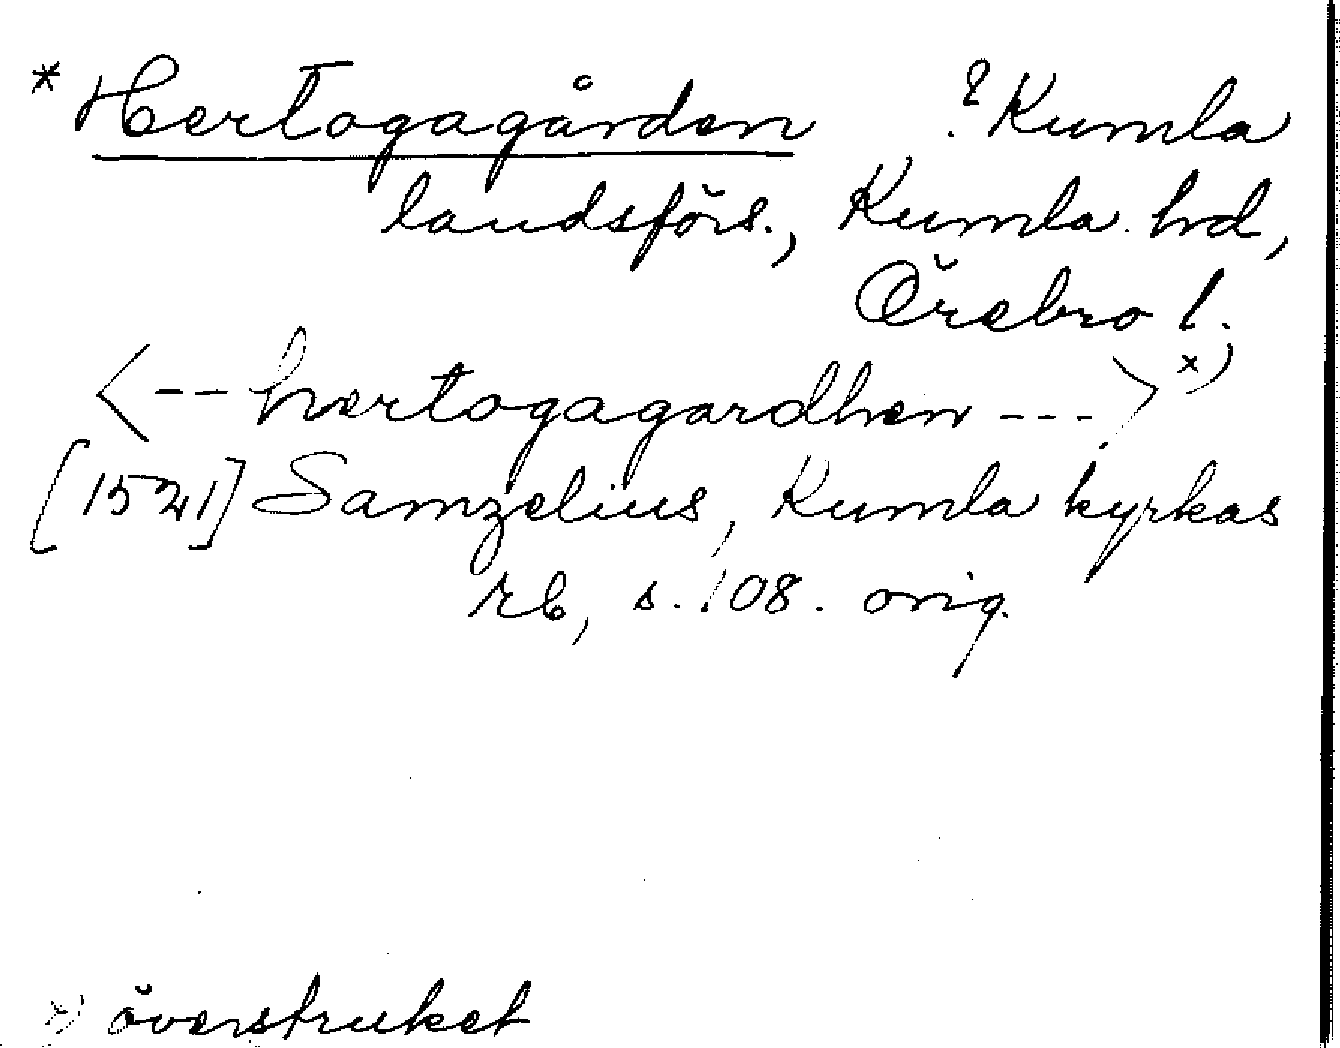 * Hertogagården ? Kumla
landsförs., Kumla hd,
Örebro l.
<-- hertogagardhen --->x)
[1521] Samzelius, Kumla kyrkas
rb, s. 108. orig.
x) överstruket